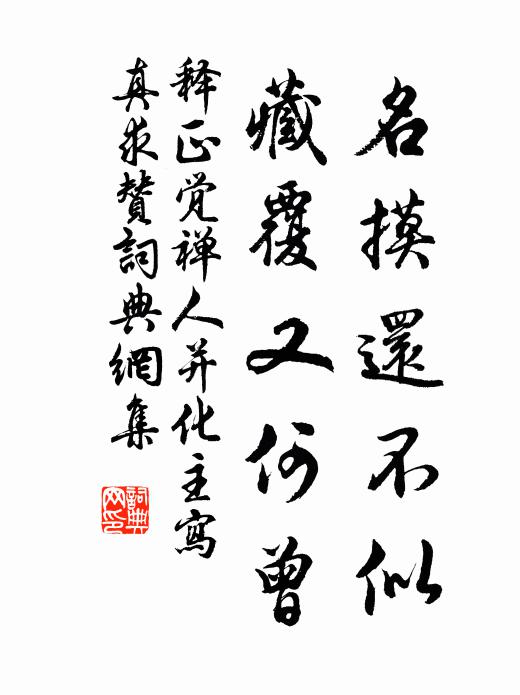 名摸還不似
藏覆又何曾
释正觉禅人并化主寫
真求賛詞典網集
詞典网印